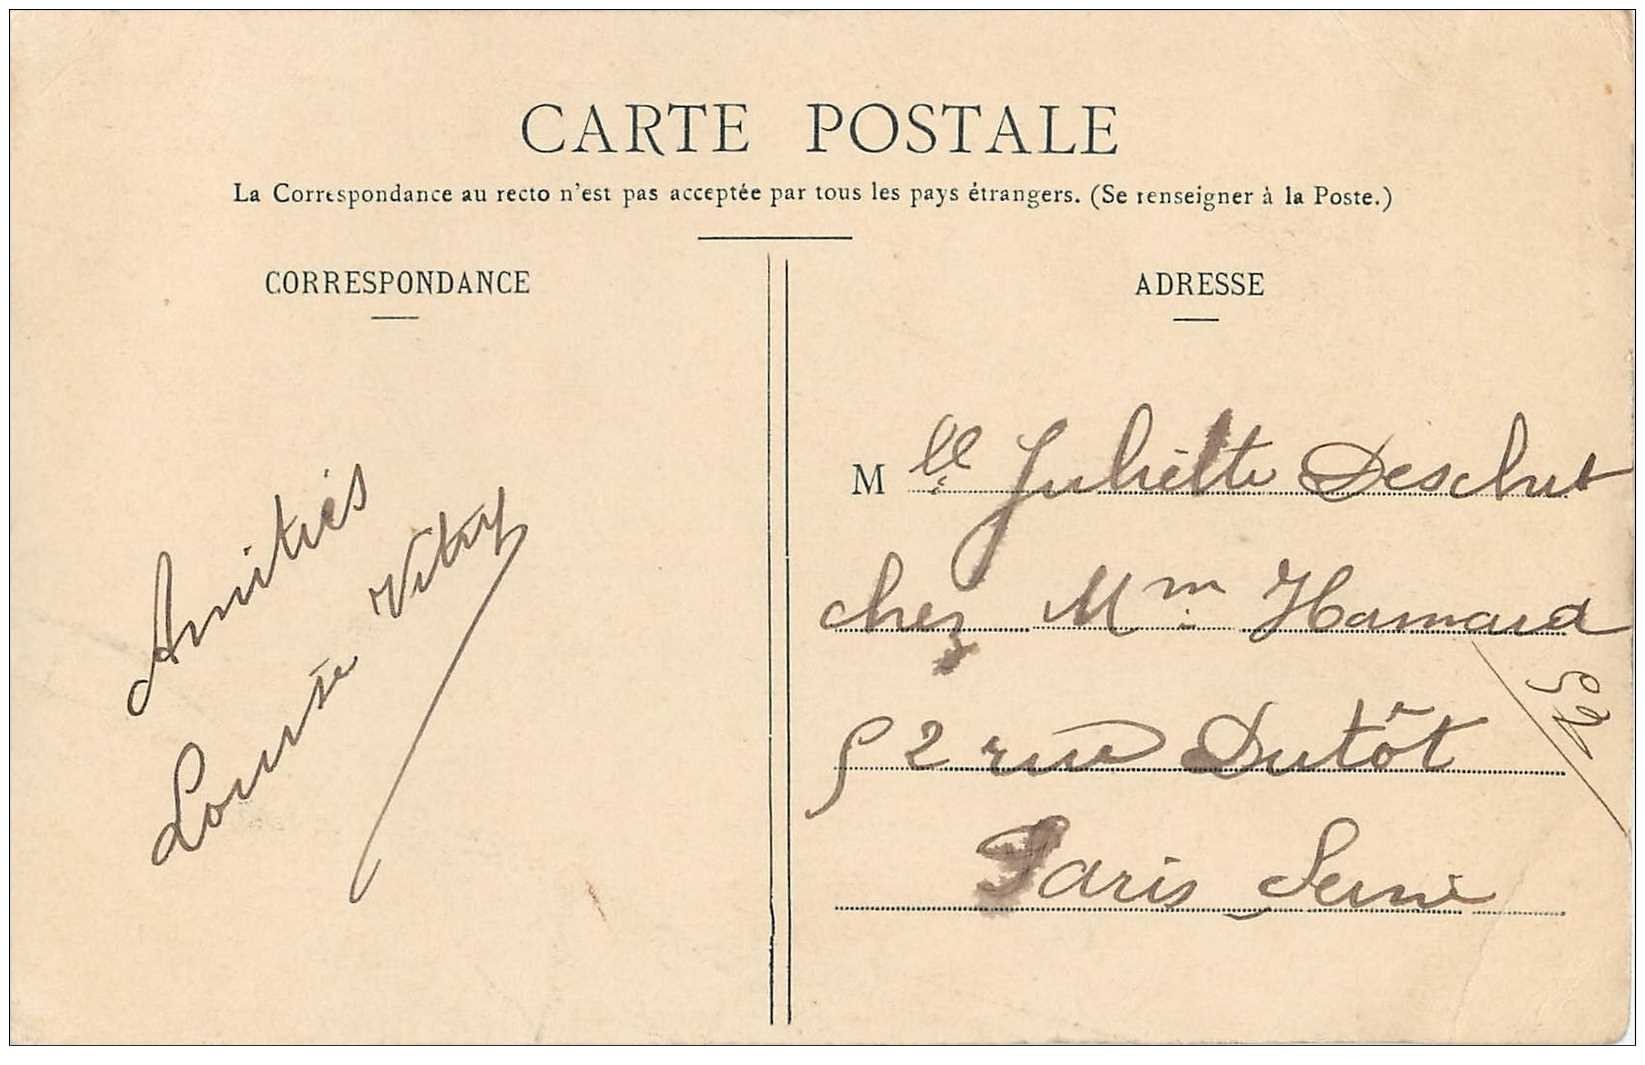 CARTE POSTALE
La Correspondance au recto n'est pas acceptée par tous les pays étrangers. (Se renseigner à la Poste.)
CORRESPONDANCE
Amitiés
Louise Vitry
ADRESSE
Mlle Juliette Deschut
chez Mm Hamard
52 rue Dutôt
Paris Seine